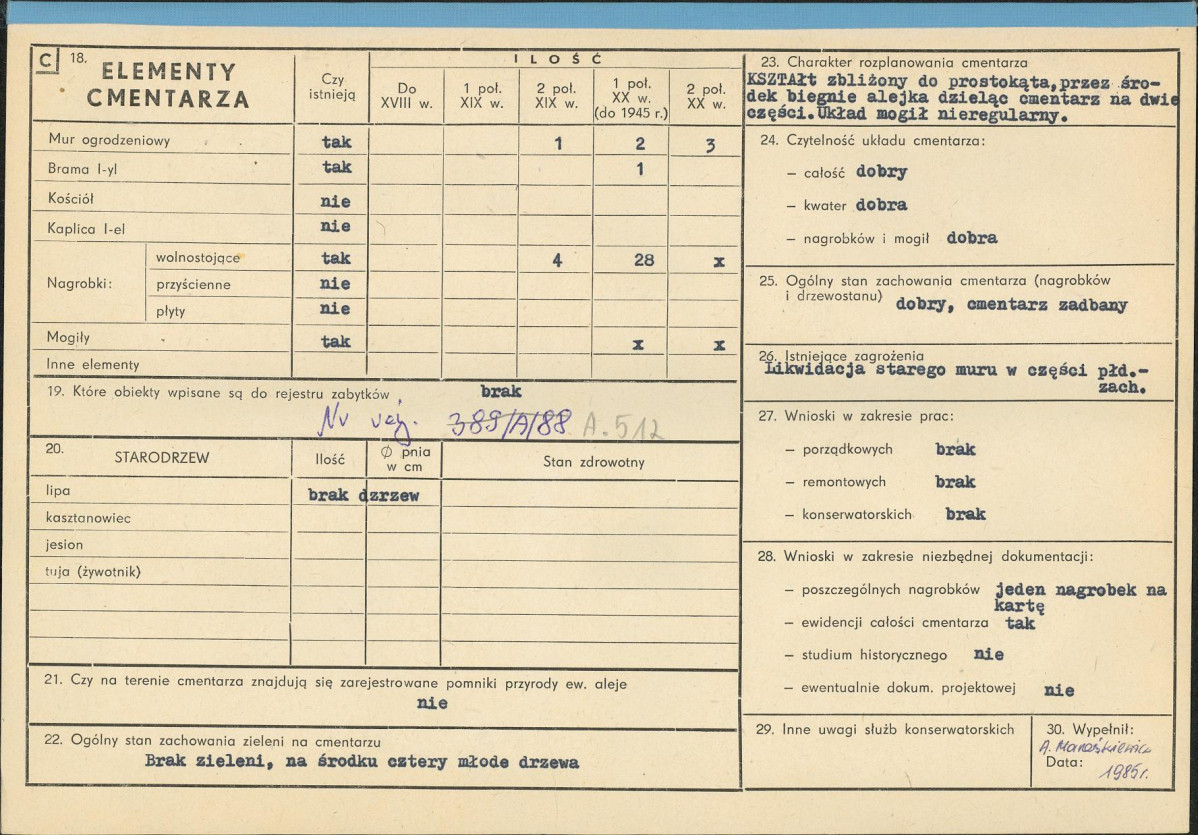 C 18. ELEMENTY
CMENTARZA
Czy
istnieją
ILOŚĆ
Do
XVIII w.
1 poł.
XIX w.
2 poł.
XIX w.
1 poł.
XX w.
(do 1945 r.)
2 poł.
XX w.
Mur ogrodzeniowy tak 1 2 3
Brama I-yl tak 1
Kościół nie
Kaplica I-el nie
Nagrobki:
wolnostojące tak 4 28 x
przyścienne nie
płyty nie
Mogiły tak x x
Inne elementy
19. Które obiekty wpisane są do rejestru zabytków brak
Nr rej. 389/A/88 A.512
20. STARODRZEW
Ilość
Ø pnia
w cm
Stan zdrowotny
lipa brak dzrzew
kasztanowiec
jesion
tuja (żywotnik)
21. Czy na terenie cmentarza znajdują się zarejestrowane pomniki przyrody ew. aleje
nie
22. Ogólny stan zachowania zieleni na cmentarzu
Brak zieleni, na środku cztery młode drzewa
23. Charakter rozplanowania cmentarza
KSZTAŁt zbliżony do prostokąta,przez śro-
dek biegnie alejka dzieląc cmentarz na dwie
części.Układ mogił nieregularny.
24. Czytelność układu cmentarza:
– całość dobry
– kwater dobra
– nagrobków i mogił dobra
25. Ogólny stan zachowania cmentarza (nagrobków
i drzewostanu) dobry, cmentarz zadbany
26. Istniejące zagrożenia
Likwidacja starego muru w części płd.-
zach.
27. Wnioski w zakresie prac:
– porządkowych brak
– remontowych brak
– konserwatorskich brak
28. Wnioski w zakresie niezbędnej dokumentacji:
– poszczególnych nagrobków jeden nagrobek na
kartę
– ewidencji całości cmentarza tak
– studium historycznego nie
– ewentualnie dokum. projektowej nie
29. Inne uwagi służb konserwatorskich
30. Wypełnił:
A.
Data:
1985r.